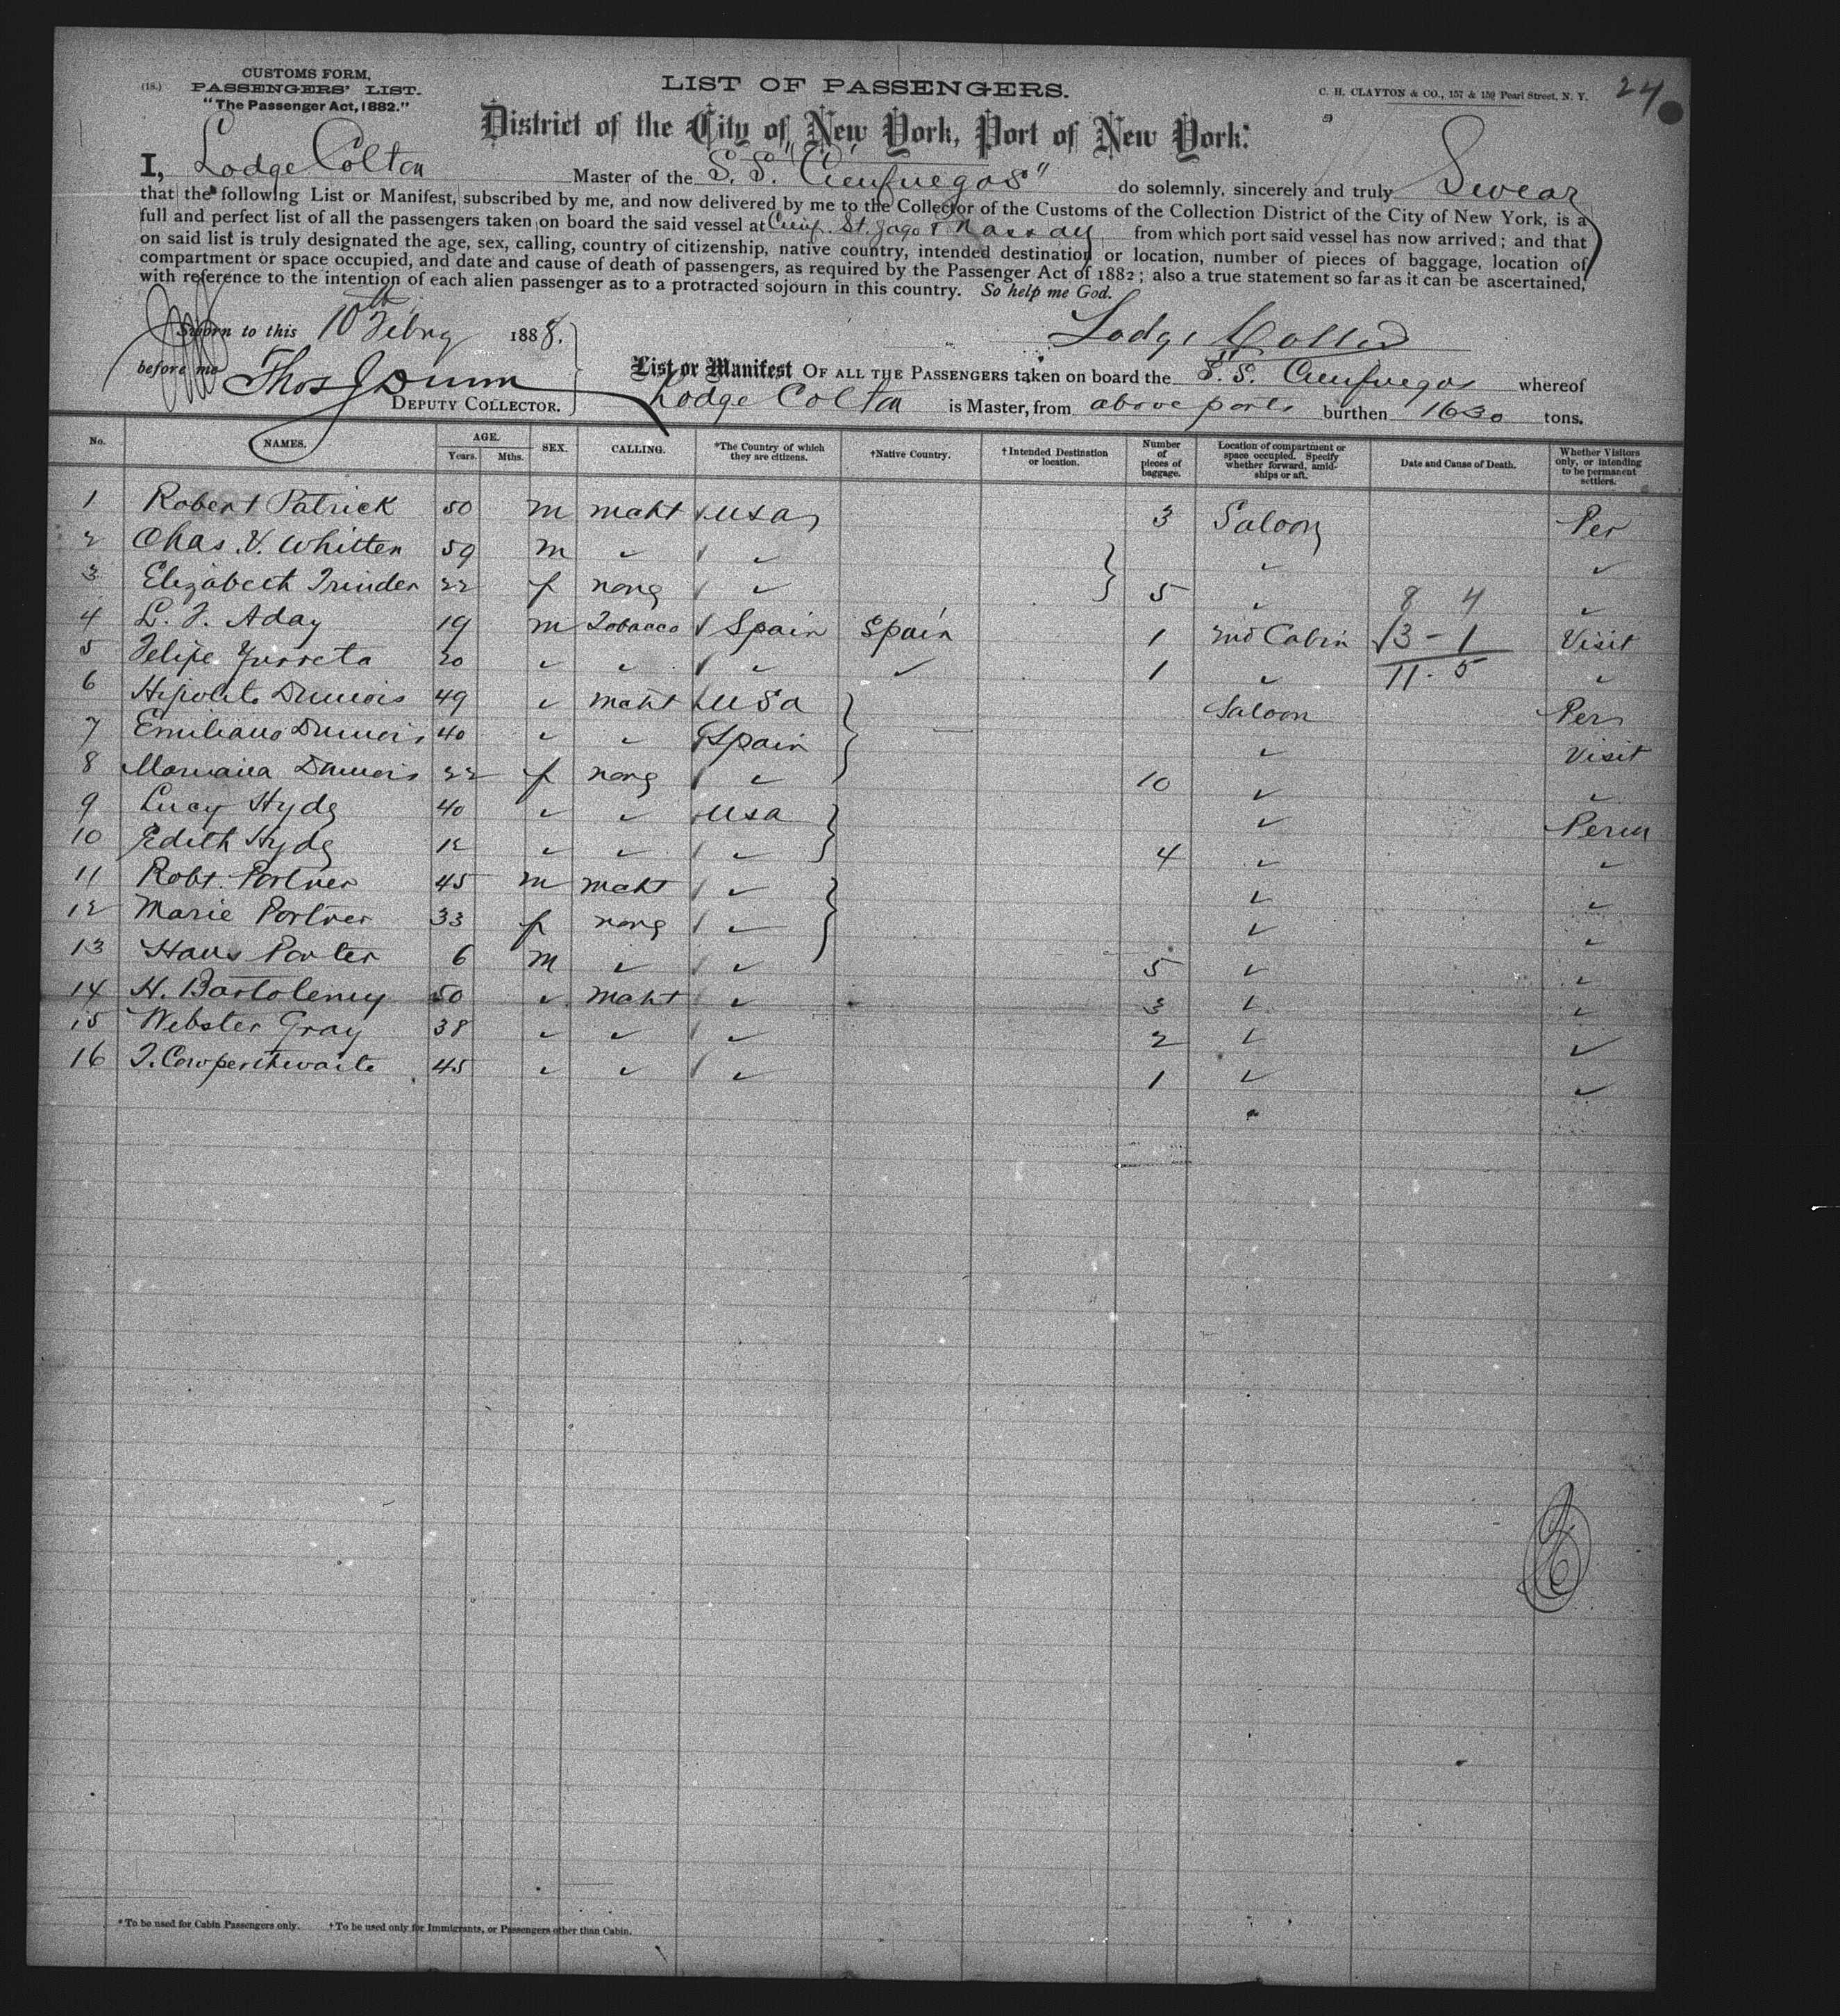 24
(18.) CUSTOMS FORM,
PASSENGERS' LIST.
"The Passenger Act, 1882."
LIST OF PASSENGERS.
C. H. CLAYTON & CO., 157 & 159 Pearl Street, N. Y.
District of the City of New York, Port of New York:
I, Lodge Colton Master of the S. S. "Cienfuegos" do solemnly, sincerely and truly Swear
that the following List or Manifest, subscribed by me, and now delivered by me to the Collector of the Customs of the Collection District of the City of New York, is a
full and perfect list of all the passengers taken on board the said vessel at Cienf. St. Jago & Nassau from which port said vessel has now arrived; and that
on said list is truly designated the age, sex, calling, country of citizenship, native country, intended destination or location, number of pieces of baggage, location of
compartment or space occupied, and date and cause of death of passengers, as required by the Passenger Act of 1882; also a true statement so far as it can be ascertained,
with reference to the intention of each alien passenger as to a protracted sojourn in this country. So help me God.
Sworn to this 10th Febry 1888.
Lodge Colton
before me Thos J Dunn
DEPUTY COLLECTOR.
List or Manifest OF ALL THE PASSENGERS taken on board the S. S. Cienfuegos whereof
Lodge Colton is Master, from above ports burthen 1630 tons.
No. NAMES. AGE. Years. Mths. SEX. CALLING. *The Country of which they are citizens. †Native Country. †Intended Destination or location. Number of pieces of baggage. Location of compartment or space occupied. Specify whether forward, amidships or aft. Date and Cause of Death. Whether Visitors only, or intending to be permanent settlers.
1 Robert Patrick 50 m mcht usa 3 Saloon Per
2 Chas. V. Whitten 59 m ✓ ✓ ✓ ✓
3 Elizabeth Trinder 22 f none ✓ 5 ✓ 8 4 ✓
4 L. F. Aday 19 m Tobacco Spain Spain 1 2nd Cabin 3 - 1 Visit
5 Felipe 20 ✓ ✓ ✓ ✓ 1 ✓ 11 - 5 ✓
6 Hipolito Dumois 49 ✓ mcht usa Saloon Per
7 Emiliano Dumois 40 ✓ ✓ Spain ✓ Visit
8 Dumois 22 f none ✓ 10 ✓ ✓
9 Lucy Hyde 40 ✓ ✓ usa ✓ Perm
10 Edith Hyde 12 ✓ ✓ ✓ 4 ✓ ✓
11 Robt. Portner 45 m mcht ✓ ✓ ✓
12 Marie Portner 33 f none ✓ ✓ ✓
13 Hans Porter 6 m ✓ ✓ 5 ✓ ✓
14 H. Bartolemy 50 ✓ mcht ✓ 3 ✓ ✓
15 Webster Gray 38 ✓ ✓ ✓ 2 ✓ ✓
16 T. Cowperthwaite 45 ✓ ✓ ✓ 1 ✓ ✓
*To be used for Cabin Passengers only. †To be used only for Immigrants, or Passengers other than Cabin.